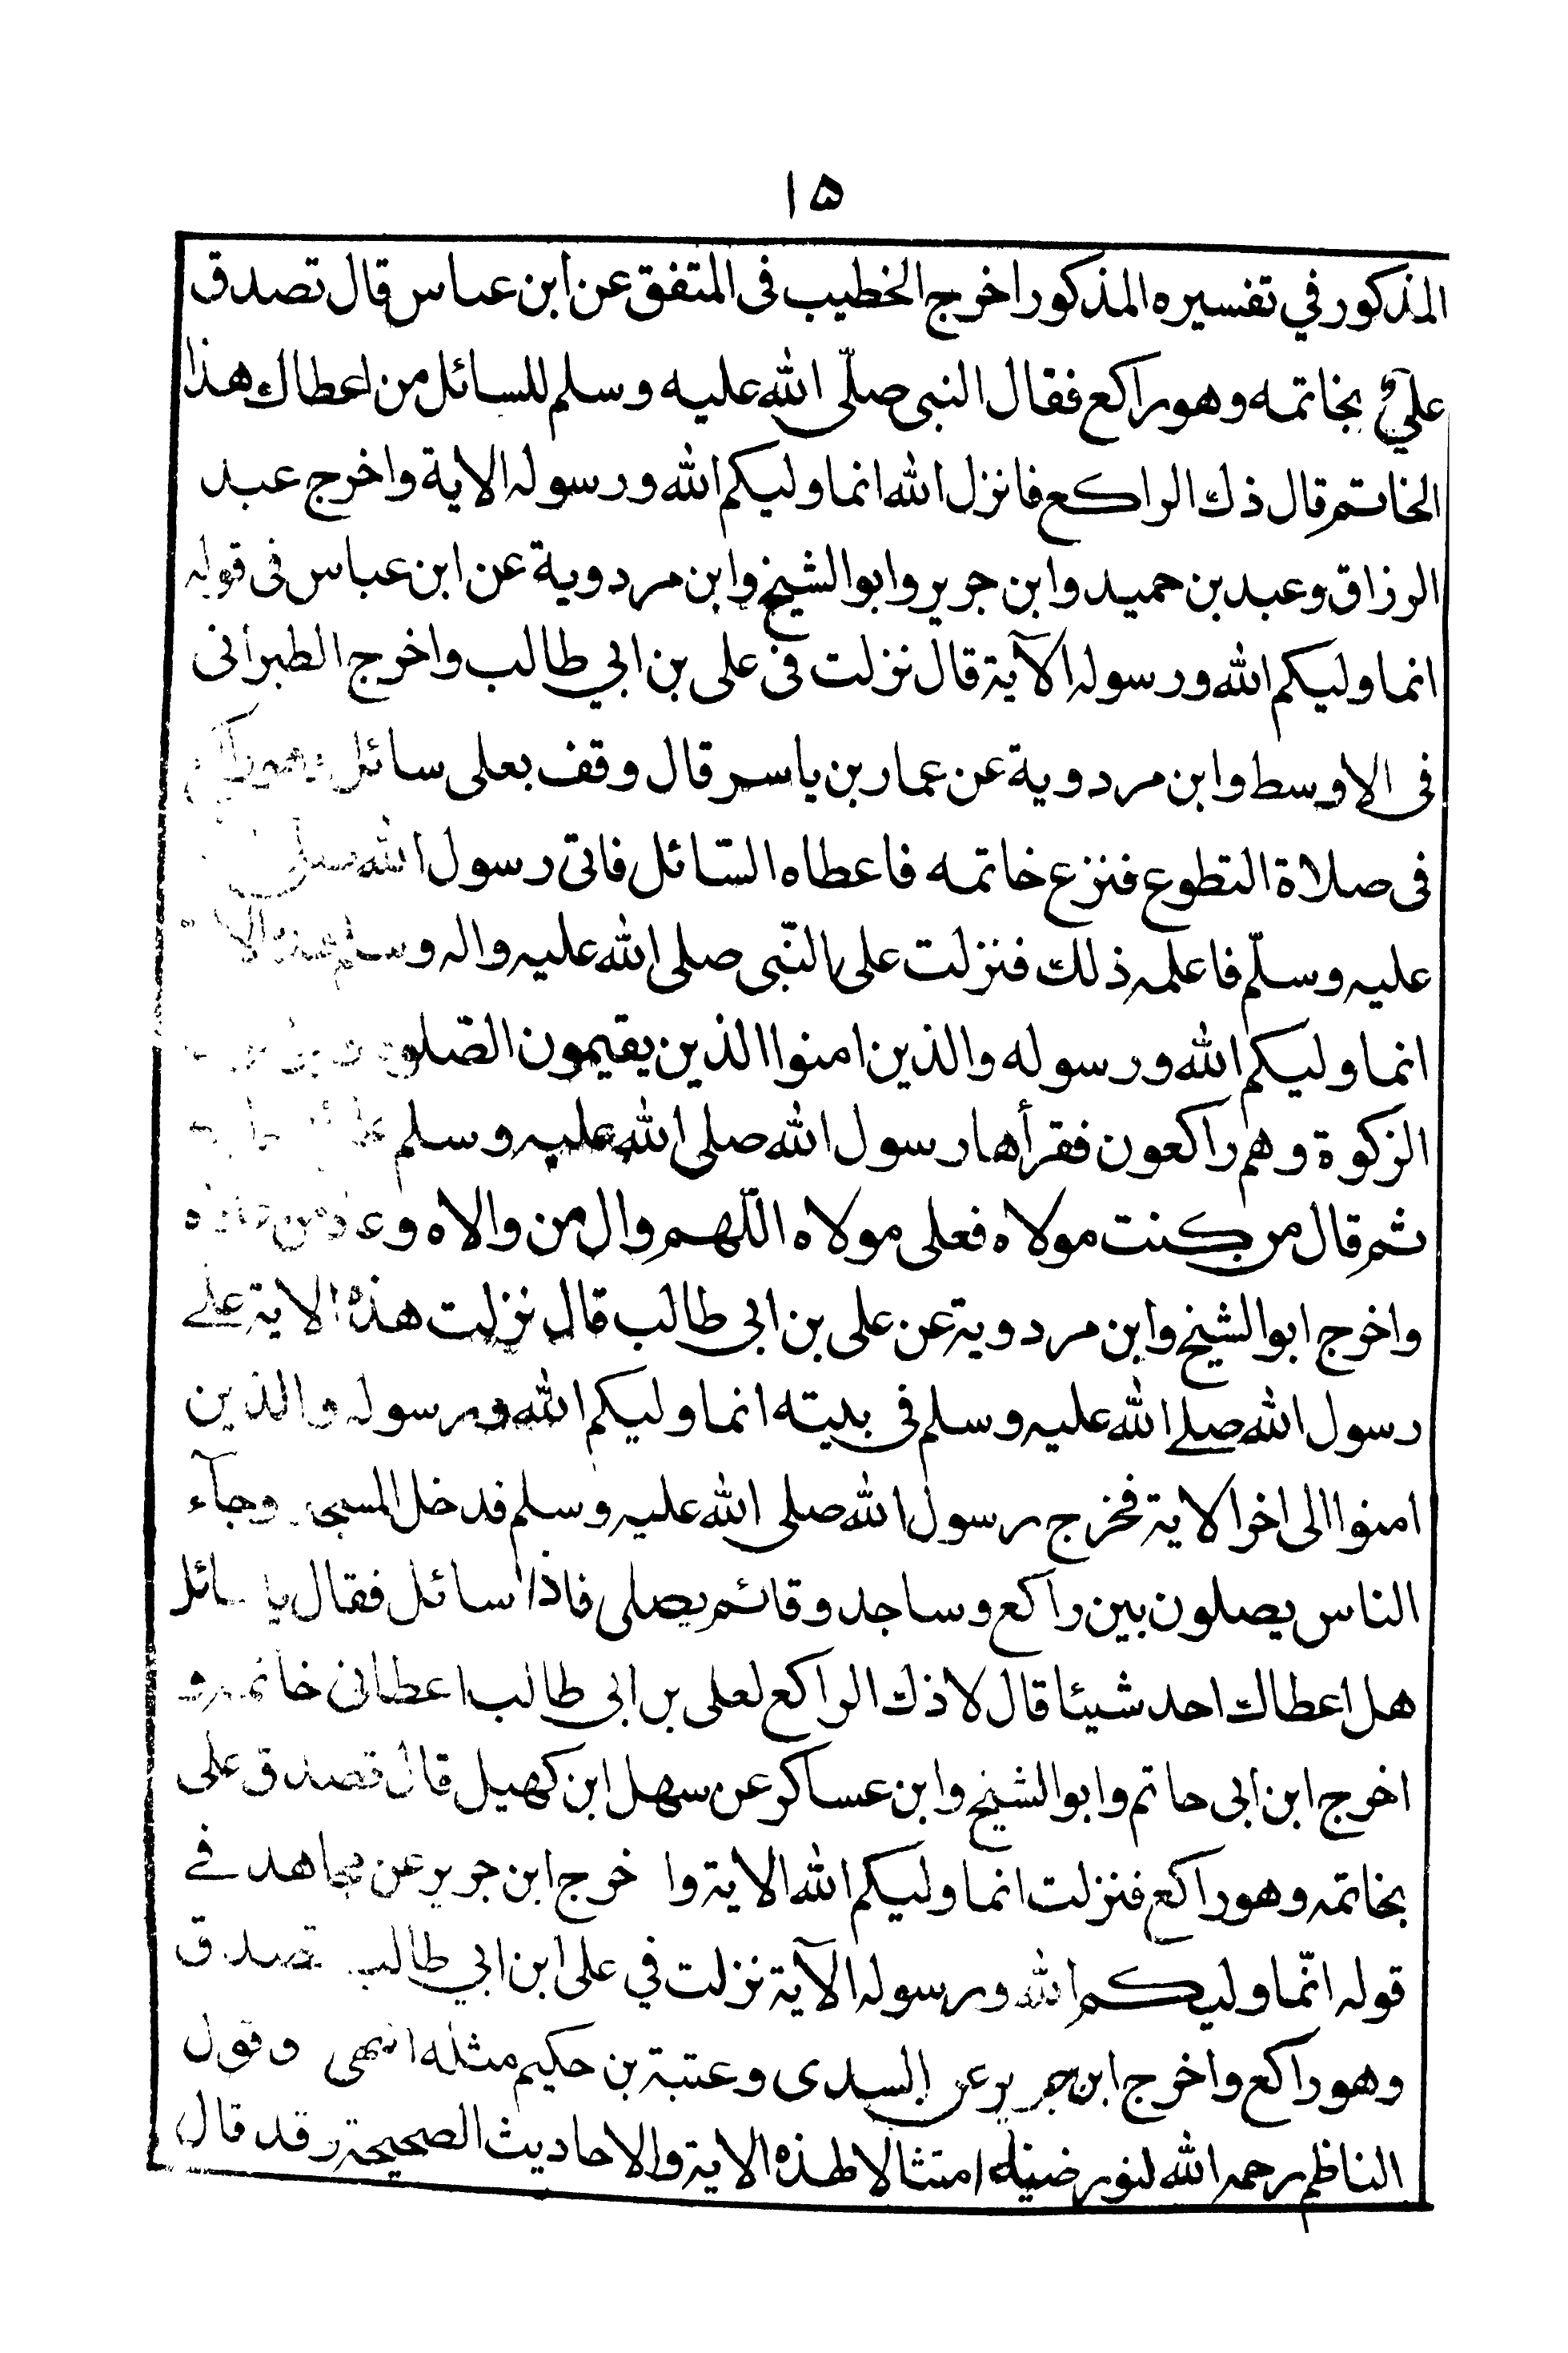 ١٥
المذكور في تفسيره المذكور اخرج الخطيب فى المتفق عن ابن عباس قال تصدق
عليٌ بخاتمه وهو راكع فقال النبى صلّى الله عليه وسلم للسائل من اعطاك هذا
الخاتم قال ذك الراكع فانزل الله انما وليكم الله ورسوله الاية واخرج عبد
الرزاق وعبد بن حميد وابن جرير وابو الشيخ وابن مردوية عن ابن عباس فى قوله
انما وليكم الله ورسوله الآية قال نزلت فى على بن ابي طالب واخرج الطبرانى
فى الاوسط وابن مردوية عن عمار بن ياسر قال وقف بعلى سائل وهو راكع
فى صلاة التطوع فنزع خاتمه فاعطاه السّائل فاتى رسول الله صلى
عليه وسلّم فاعلمه ذلك فنزلت على النّبى صلى الله عليه واله وسلم هذه الاية
انما وليكم الله ورسوله والذين امنوا الذين يقيمون الصّلوة
الزكوة وهم راكعون فقرأها رسول الله صلى الله عليه وسلم
ثم قال من كنت مولاه فعلى مولاه اللّهم وال من والاه وعاد من عاداه
واخرج ابو الشيخ وابن مردوية عن على بن ابى طالب قال نزلت هذه الاية على
رسول الله صلى الله عليه وسلم فى بيته انما وليكم الله ورسوله والذين
امنوا الى اخر الاية فخرج رسول الله صلى الله عليه وسلم فدخل المسجد وجآء
الناس يصلون بين راكع وساجد وقائم يصلى فاذا سائل فقال يا سائل
هل اعطاك احد شيئا قال لا ذك الراكع لعلى بن ابى طالب اعطانى خاتمه و
اخرج ابن ابى حاتم وابو الشيخ وابن عساكر عن سهل ابن كهيل قال تصدق على
بخاتمه وهو راكع فنزلت انما وليكم الله الاية وا خرج ابن جرير عن مجاهد فى
قوله انّما وليكم الله ورسوله الآية نزلت في على ابن ابي طالب تصدق
وهو راكع واخرج ابن جرير عن السدى وعتبة بن حكيم مثله انتهى وقول
الناظم رحمه الله امتثالا لهذه الاية والاحاديث الصحيحة وقد قال